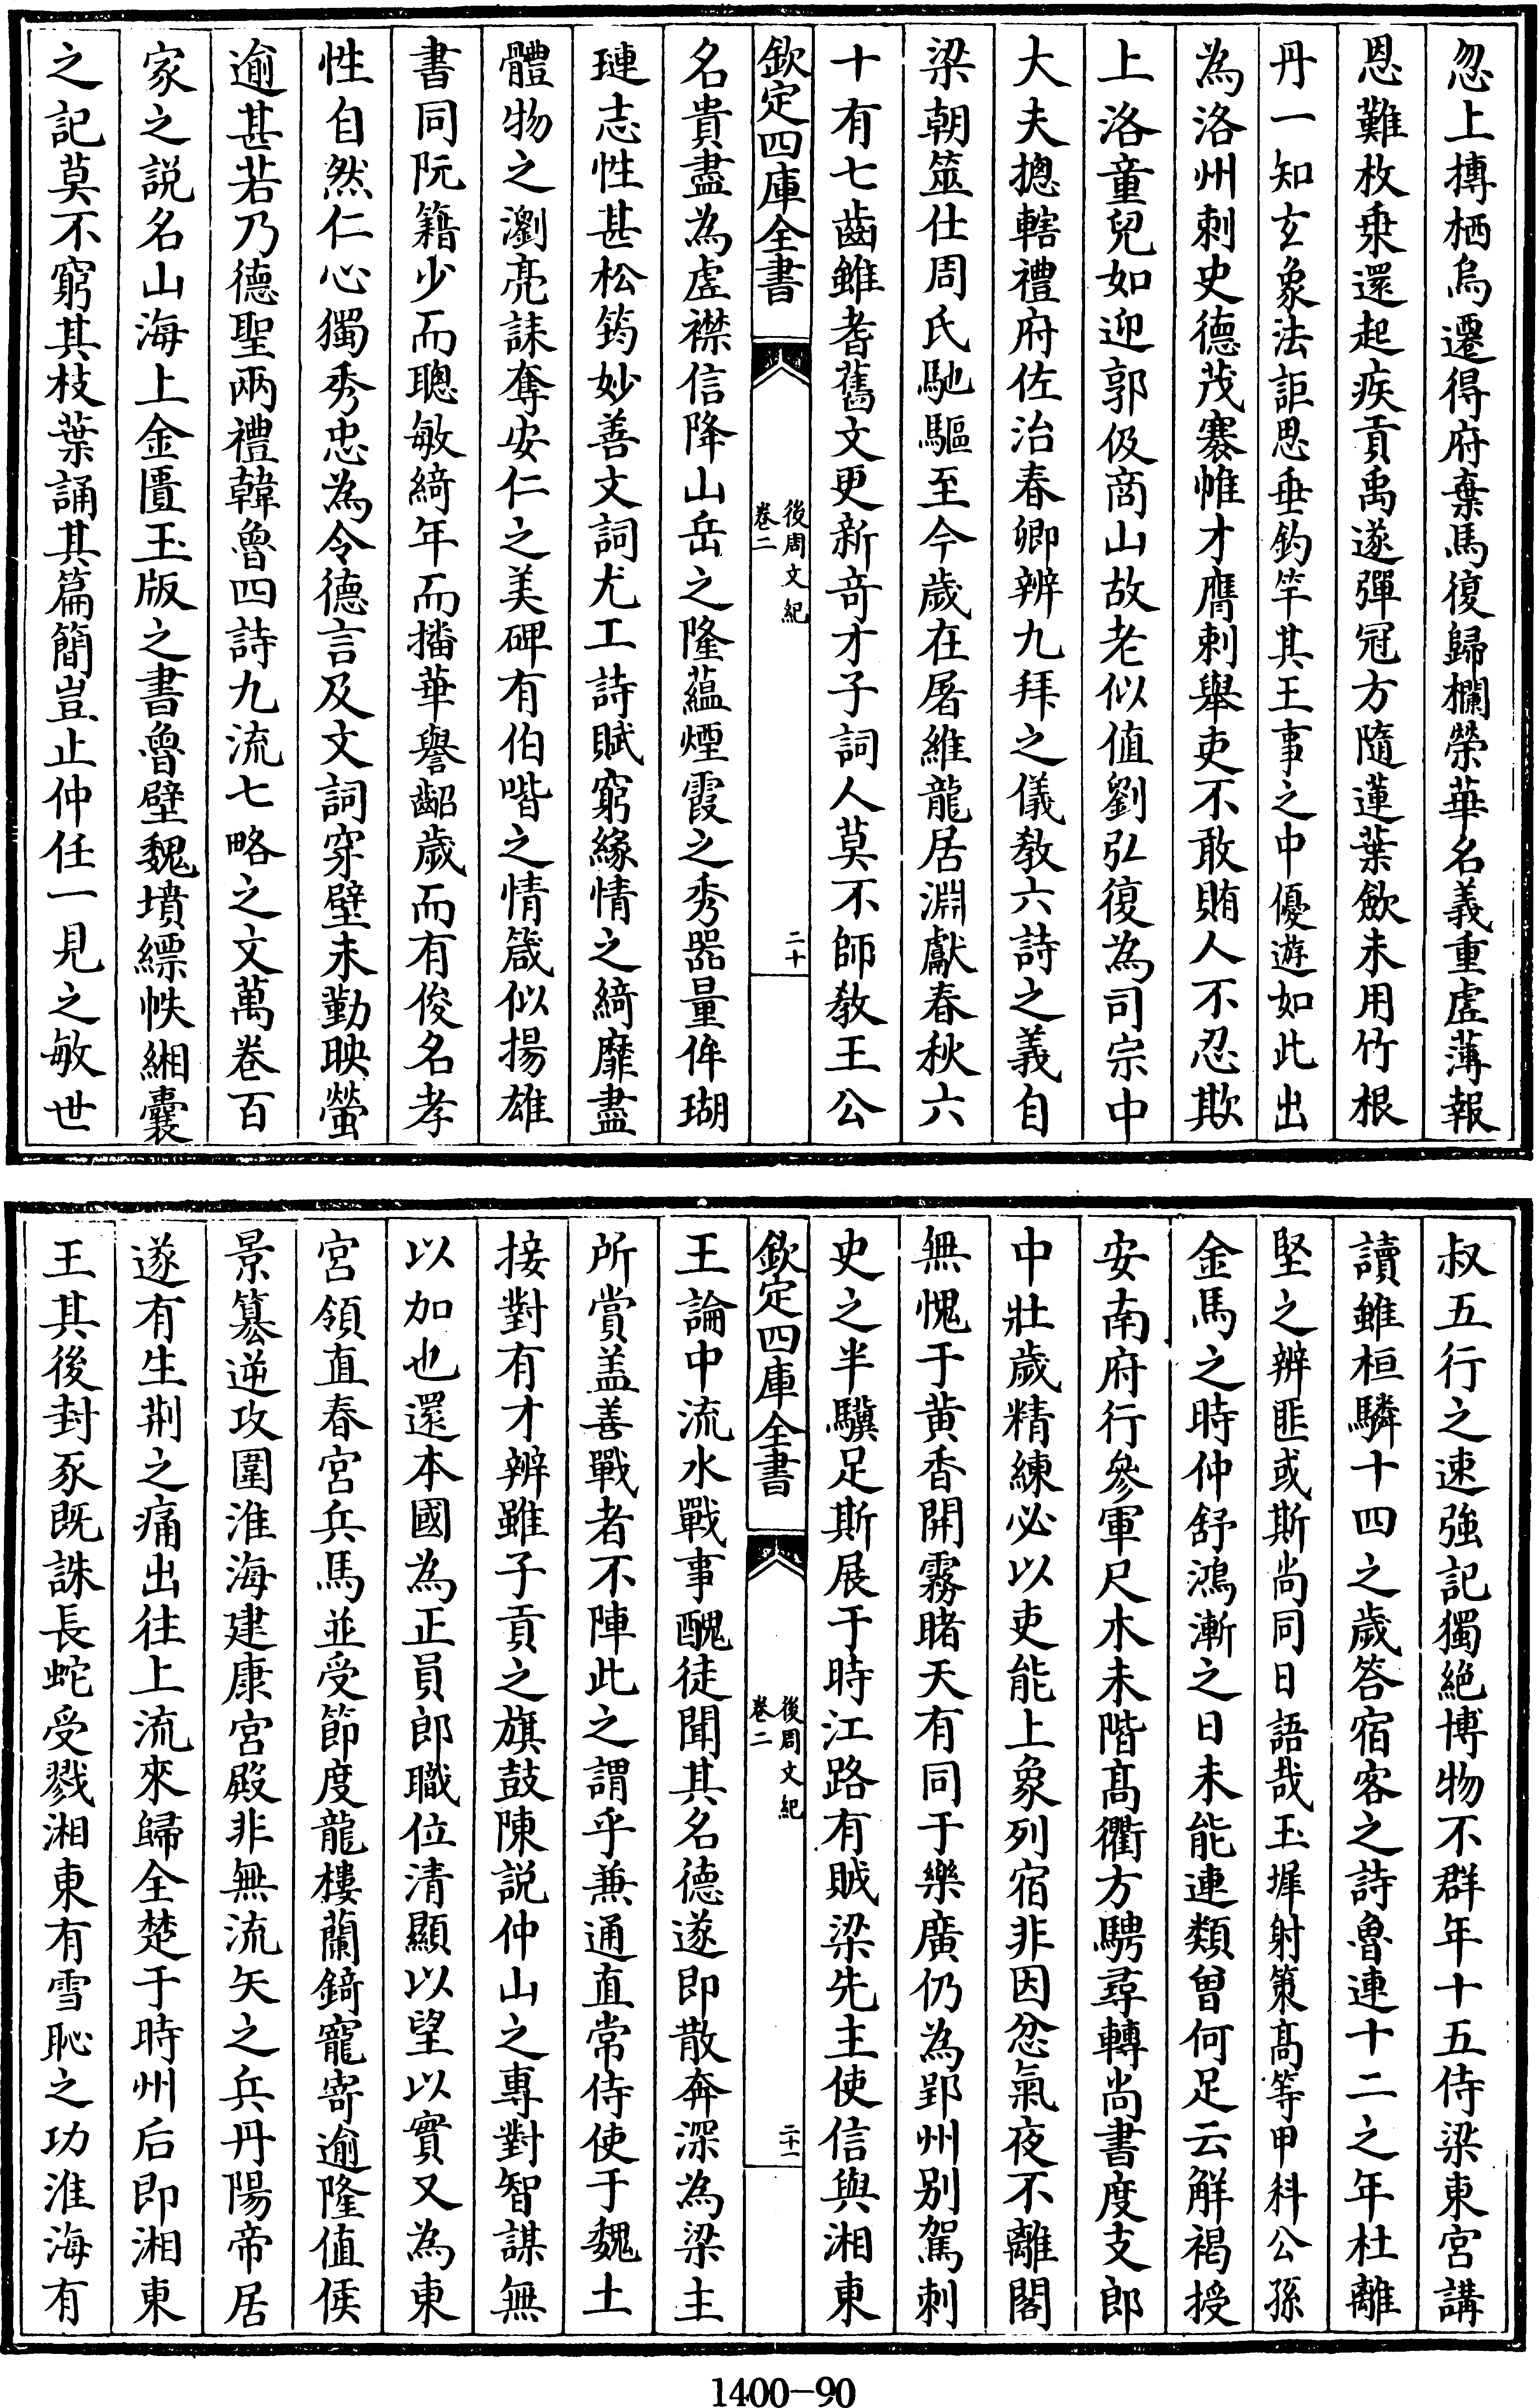 忽上摶栖烏遷得府棄馬復歸欄榮華名義重虛薄報
恩難枚乗還起疾貢禹遂彈冠方隨蓮葉飲未用竹根
丹一知玄象法詎思垂釣竿其王事之中優遊如此出
為洛州刺史德茂褰帷才膺刺舉吏不敢賄人不忍欺
上洛童兒如迎郭伋商山故老似值劉弘復為司宗中
大夫摠轄禮府佐治春卿辨九拜之儀教六詩之義自
梁朝筮仕周氏馳驅至今歲在屠維龍居淵獻春秋六
十有七齒雖耆舊文更新竒才子詞人莫不師教王公
欽定四庫全書
後周文紀
卷二
二十
名貴盡為虛襟信降山岳之隆蘊煙霞之秀器量侔瑚
璉志性甚松筠妙善文詞尤工詩賦窮緣情之綺靡盡
體物之瀏亮誄奪安仁之美碑有伯喈之情箴似揚雄
書同阮籍少而聰敏綺年而播華譽齠歲而有俊名孝
性自然仁心獨秀忠為令德言及文詞穿壁未勤映螢
逾甚若乃德聖兩禮韓魯四詩九流七略之文萬卷百
家之説名山海上金匱玉版之書魯壁魏墳縹帙緗囊
之記莫不窮其枝葉誦其篇簡豈止仲任一見之敏世
叔五行之速強記獨絶博物不群年十五侍梁東宮講
讀雖桓驎十四之歲答宿客之詩魯連十二之年杜離
堅之辨匪或斯尚同日語哉玉墀射策髙等甲科公孫
金馬之時仲舒鴻漸之日未能連類曾何足云解褐授
安南府行參軍尺木未階髙衢方騁尋轉尚書度支郎
中壯歲精練必以吏能上象列宿非因忿氣夜不離閣
無愧于黃香開霧睹天有同于樂廣仍為郢州别駕刺
史之半驥足斯展于時江路有賊梁先主使信與湘東
欽定四庫全書
後周文紀
卷二
二十一
王論中流水戰事醜徒聞其名德遂即散奔深為梁主
所賞盖善戰者不陣此之謂乎兼通直常侍使于魏土
接對有才辨雖子貢之旗鼓陳説仲山之專對智謀無
以加也還本國為正員郎職位清顯以望以實又為東
宮領直春宮兵馬並受節度龍樓蘭錡寵寄逾隆值侯
景簒逆攻圍淮海建康宮殿非無流矢之兵丹陽帝居
遂有生荆之痛出往上流來歸全楚于時州后即湘東
王其後封豕既誅長蛇受戮湘東有雪恥之功淮海有
1400-90